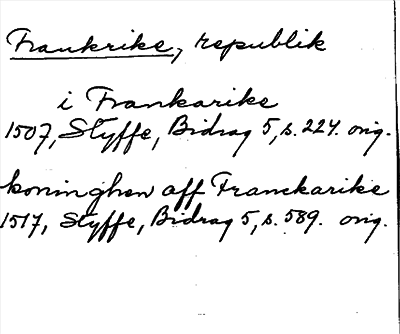 Frankrike, republik
i Frankarike
1507, Styffe, Bidrag 5, s. 224. orig.
koninghen aff Franckarike
1517, Styffe, Bidrag 5, s. 589. orig.